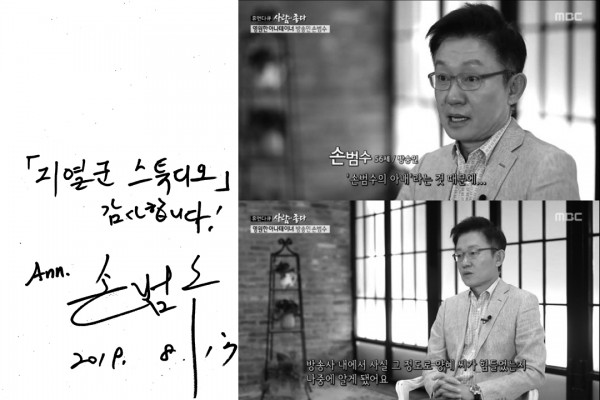 「지열군 스튜디오」
감사합니다!
Ann. 손범수
2019. 8. 13
휴먼다큐 사람이 좋다
영원한 아나테이너 방송인 손범수
MBC
손범수 56세 / 방송인
'손범수의 아내'라는 것 때문에...
휴먼다큐 사람이 좋다
영원한 아나테이너 방송인 손범수
MBC
방송사 내에서 사실 그 정도로 양혜 씨가 힘들었는지
나중에 알게 됐어요